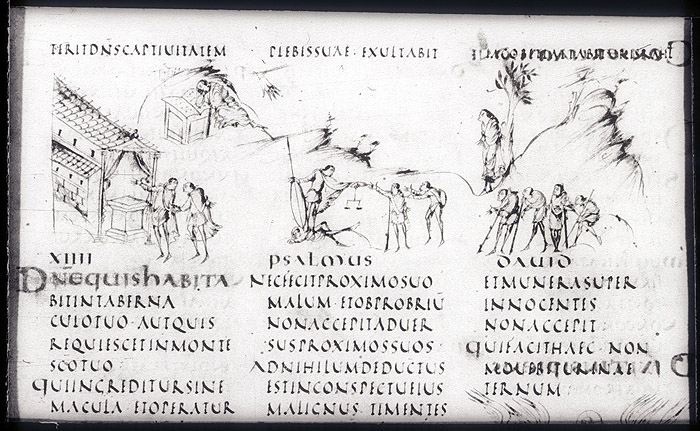 TERITDNSCAPTIUITATEM
PLEBISSUAE·EXULTABIT
XIIII
PSALMUS
DAUID
DNEQUISHABITA
BITINTABERNA
CULOTUO·AUTQUIS
REQUIESCETINMONTE
SCOTUO
QUIINGREDITURSINE
MACULA·ETOPERATUR
NECFECITPROXIMOSUO
MALUM·ETOBPROBRIU
NONACCEPITADUER
SUSPROXIMOSSUOS·
ADNIHILUMDEDUCTUS
ESTINCONSPECTUEIUS
MALIGNUS·TIMENTES
ETMUNERASUPER
INNOCENTES
NONACCEPIT·
QUIFACITHAEC·NON
MOUEBITURINAE
TERNUM·